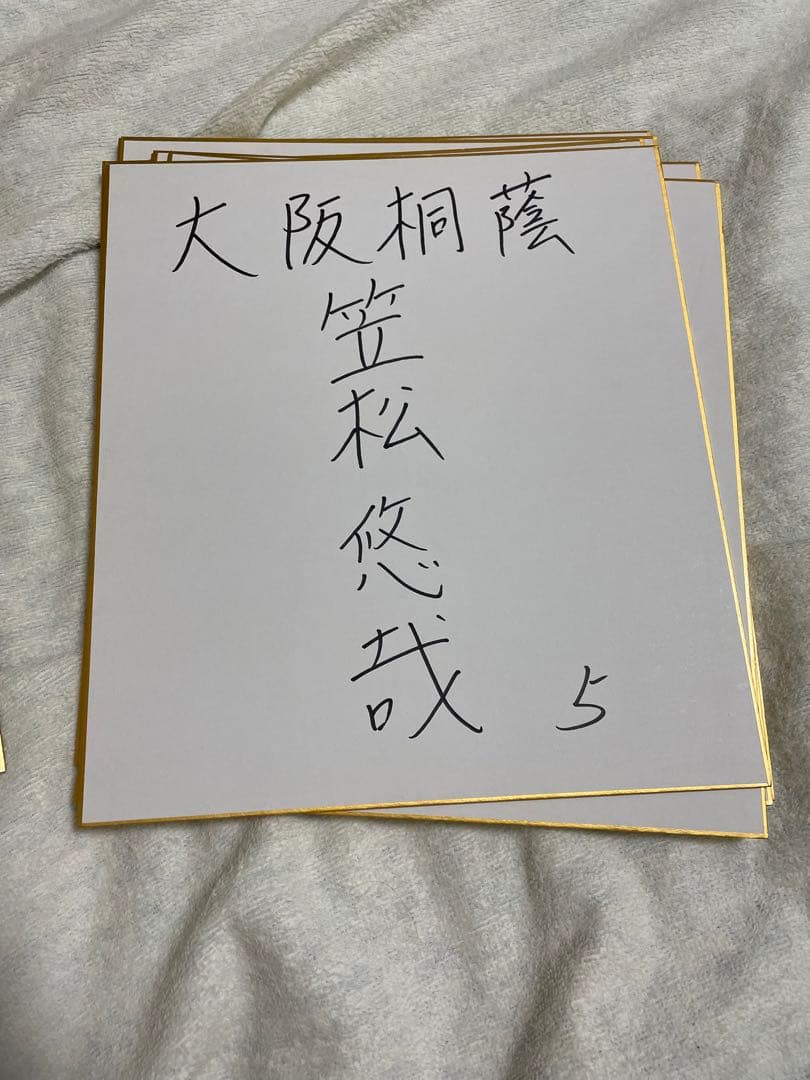 大阪桐蔭
笠松悠哉
5